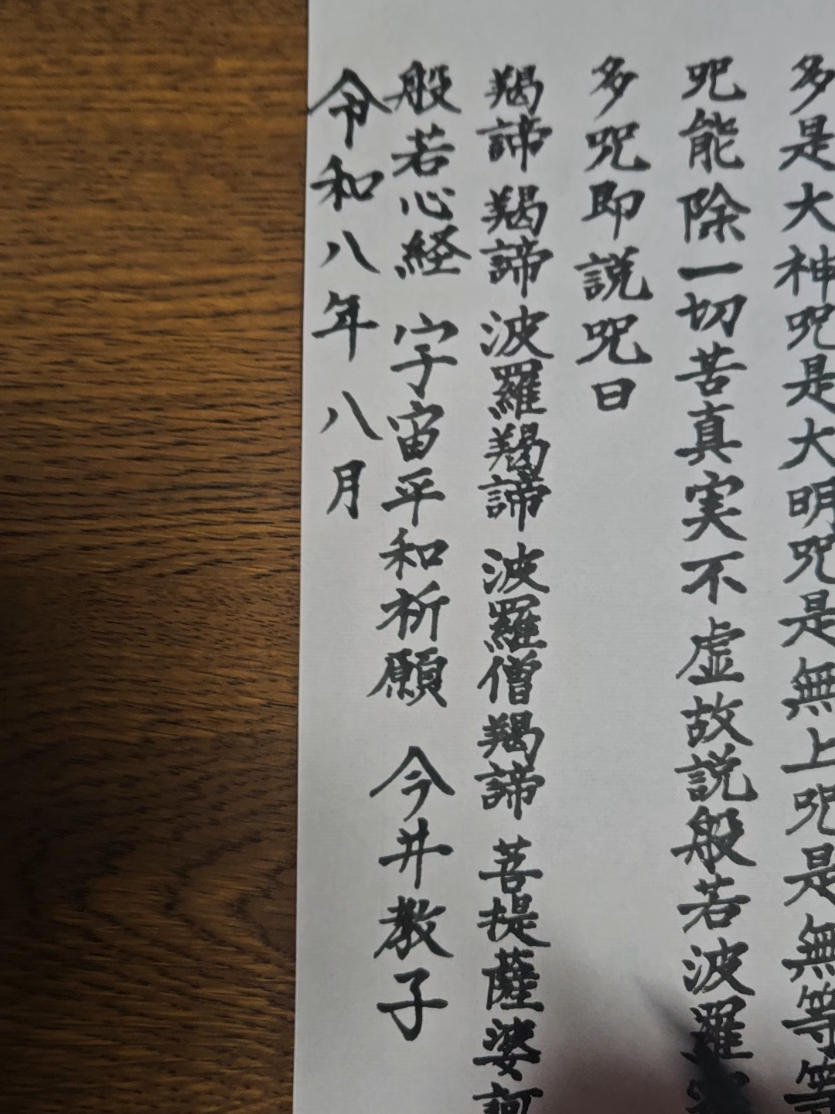 多是大神呪是大明呪是無上呪是無等等
呪能除一切苦真実不虚故説般若波羅
多呪即説呪曰
羯諦 羯諦 波羅羯諦 波羅僧羯諦 菩提薩婆訶
般若心経 宇宙平和祈願 今井教子
令和八年八月